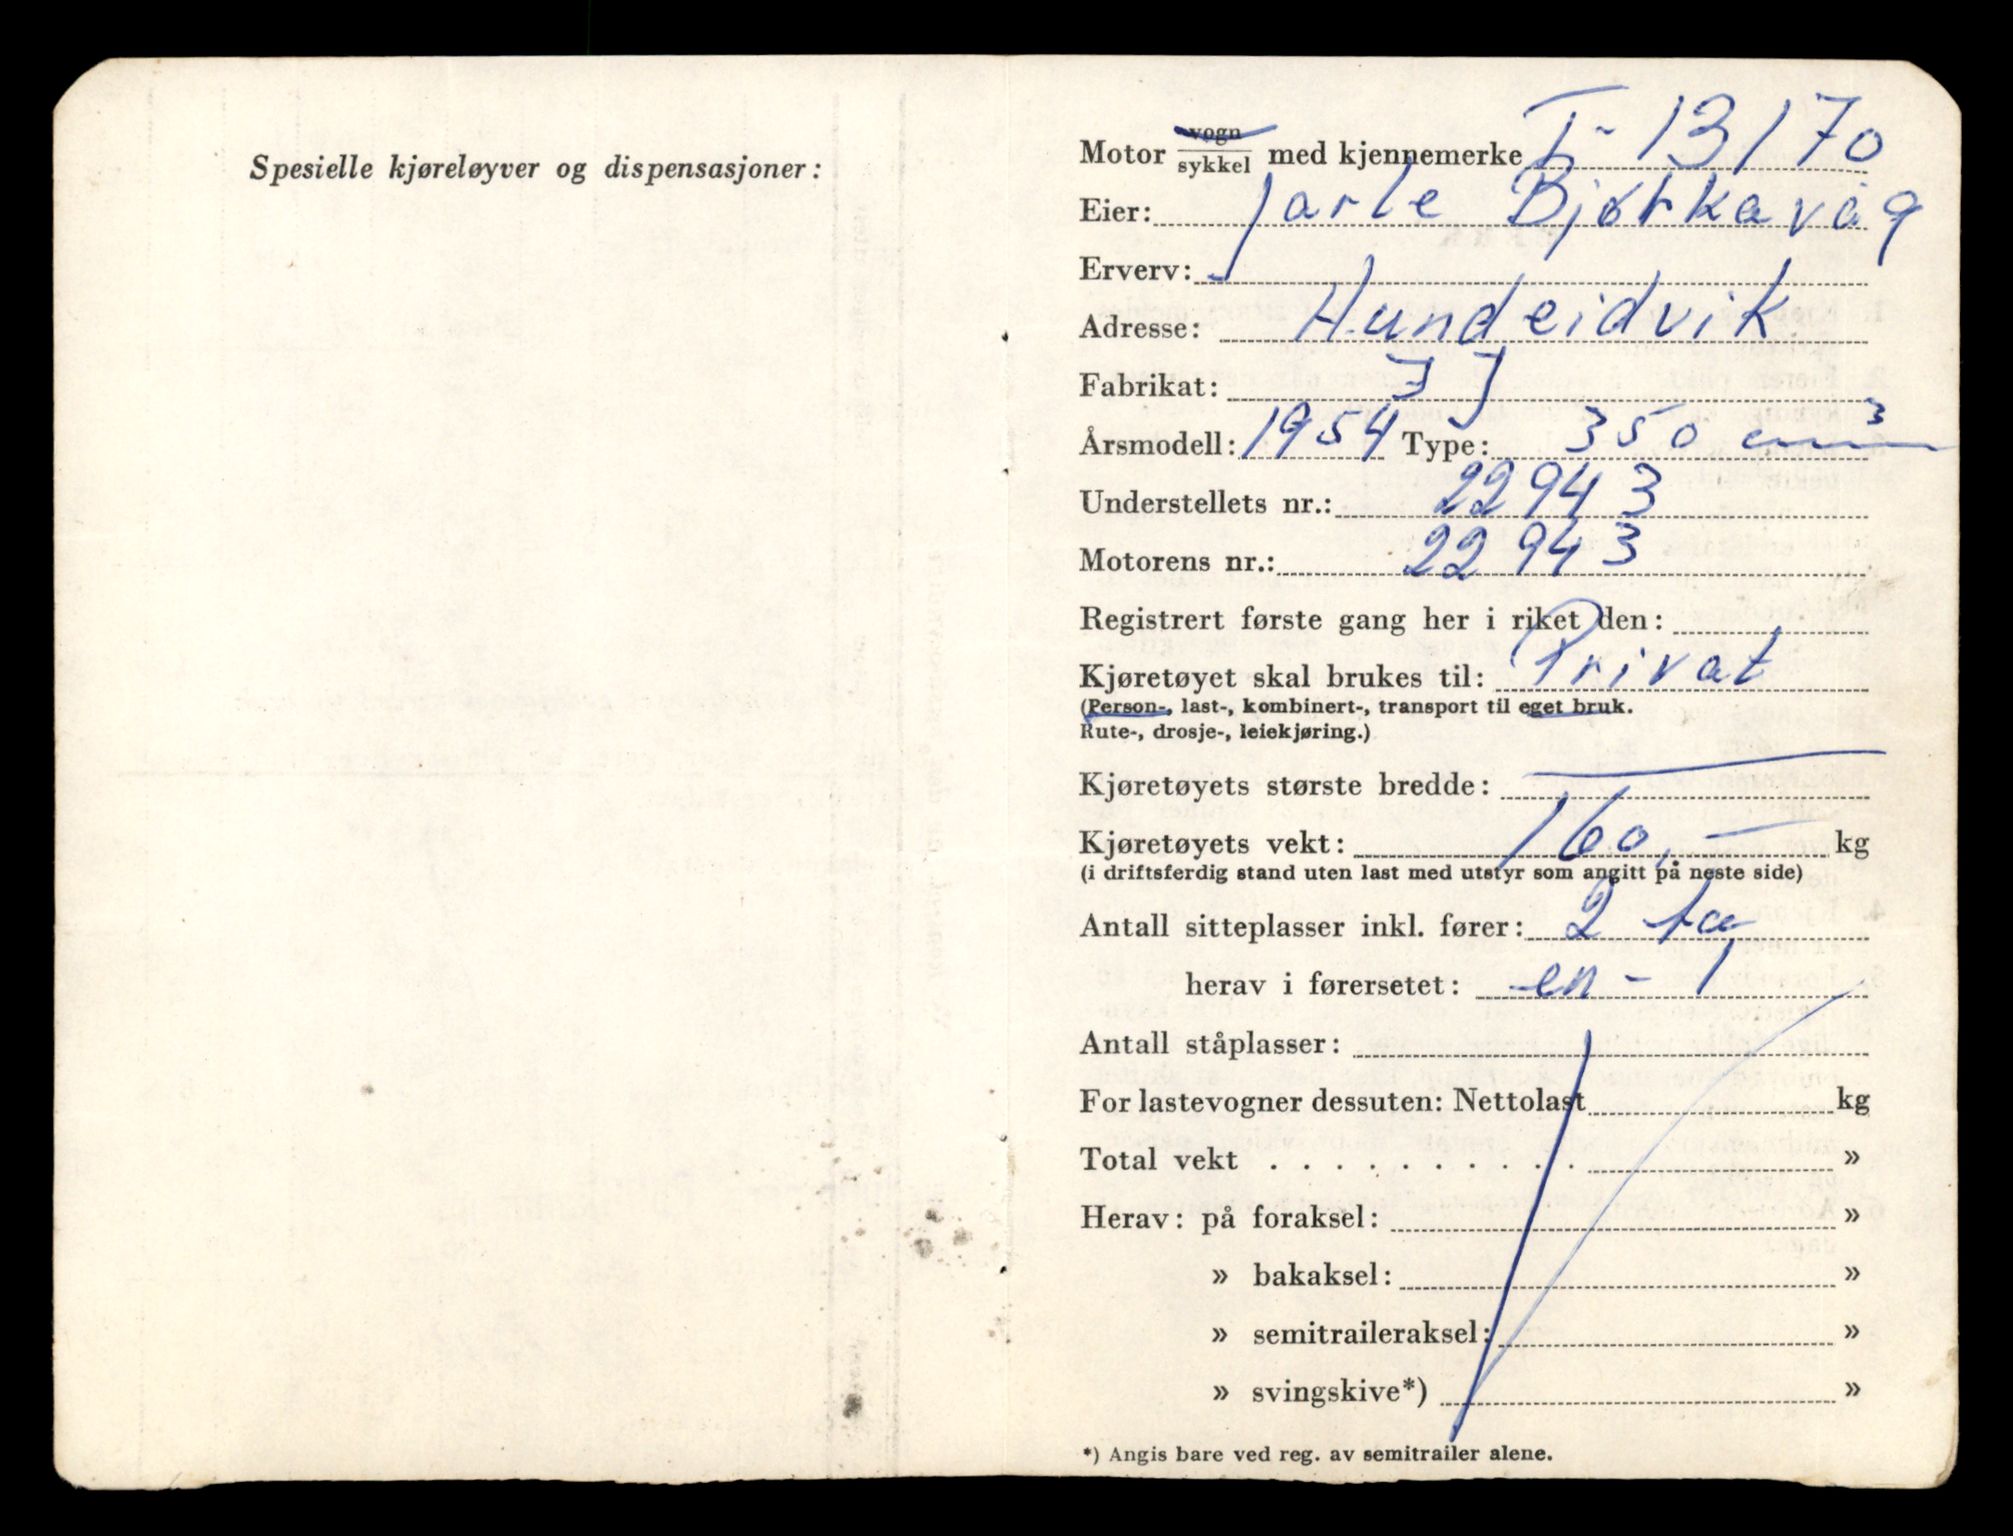 Spesielle kjøreløyver og dispensasjoner:
Motor vogn/sykkel med kjennemerke T-13170
Eier: Jarle Bjørkavåg
Erverv:
Adresse: Hundeidvik
Fabrikat: JJ
Årsmodell: 1954 Type: 350 cm³
Understellets nr.: 22943
Motorens nr.: 22943
Registrert første gang her i riket den:
Kjøretøyet skal brukes til: Privat
(Person-, last-, kombinert-, transport til eget bruk.
Rute-, drosje-, leiekjøring.)
Kjøretøyets største bredde: —
Kjøretøyets vekt: 160,— kg
(i driftsferdig stand uten last med utstyr som angitt på neste side)
Antall sitteplasser inkl. fører: 2 to
herav i førersetet: en - 1
Antall ståplasser:
For lastevogner dessuten: Nettolast kg
Total vekt . . . . . . . . . . »
Herav: på foraksel: »
» bakaksel: »
» semitraileraksel: »
» svingskive*) »
*) Angis bare ved reg. av semitrailer alene.